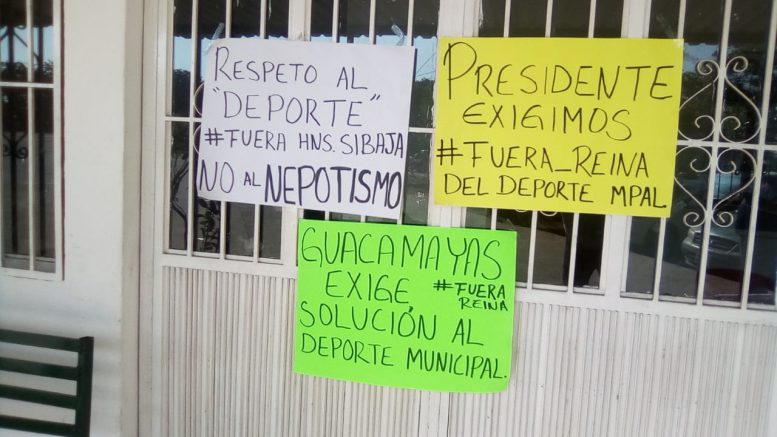 RESPETO AL
"DEPORTE"
#FUERA HNS. SIBAJA
NO AL NEPOTISMO
PRESIDENTE
EXIGIMOS
#FUERA_REINA
DEL DEPORTE MPAL
GUACAMAYAS
EXIGE #FUERA REINA
SOLUCIÓN AL
DEPORTE MUNICIPAL.